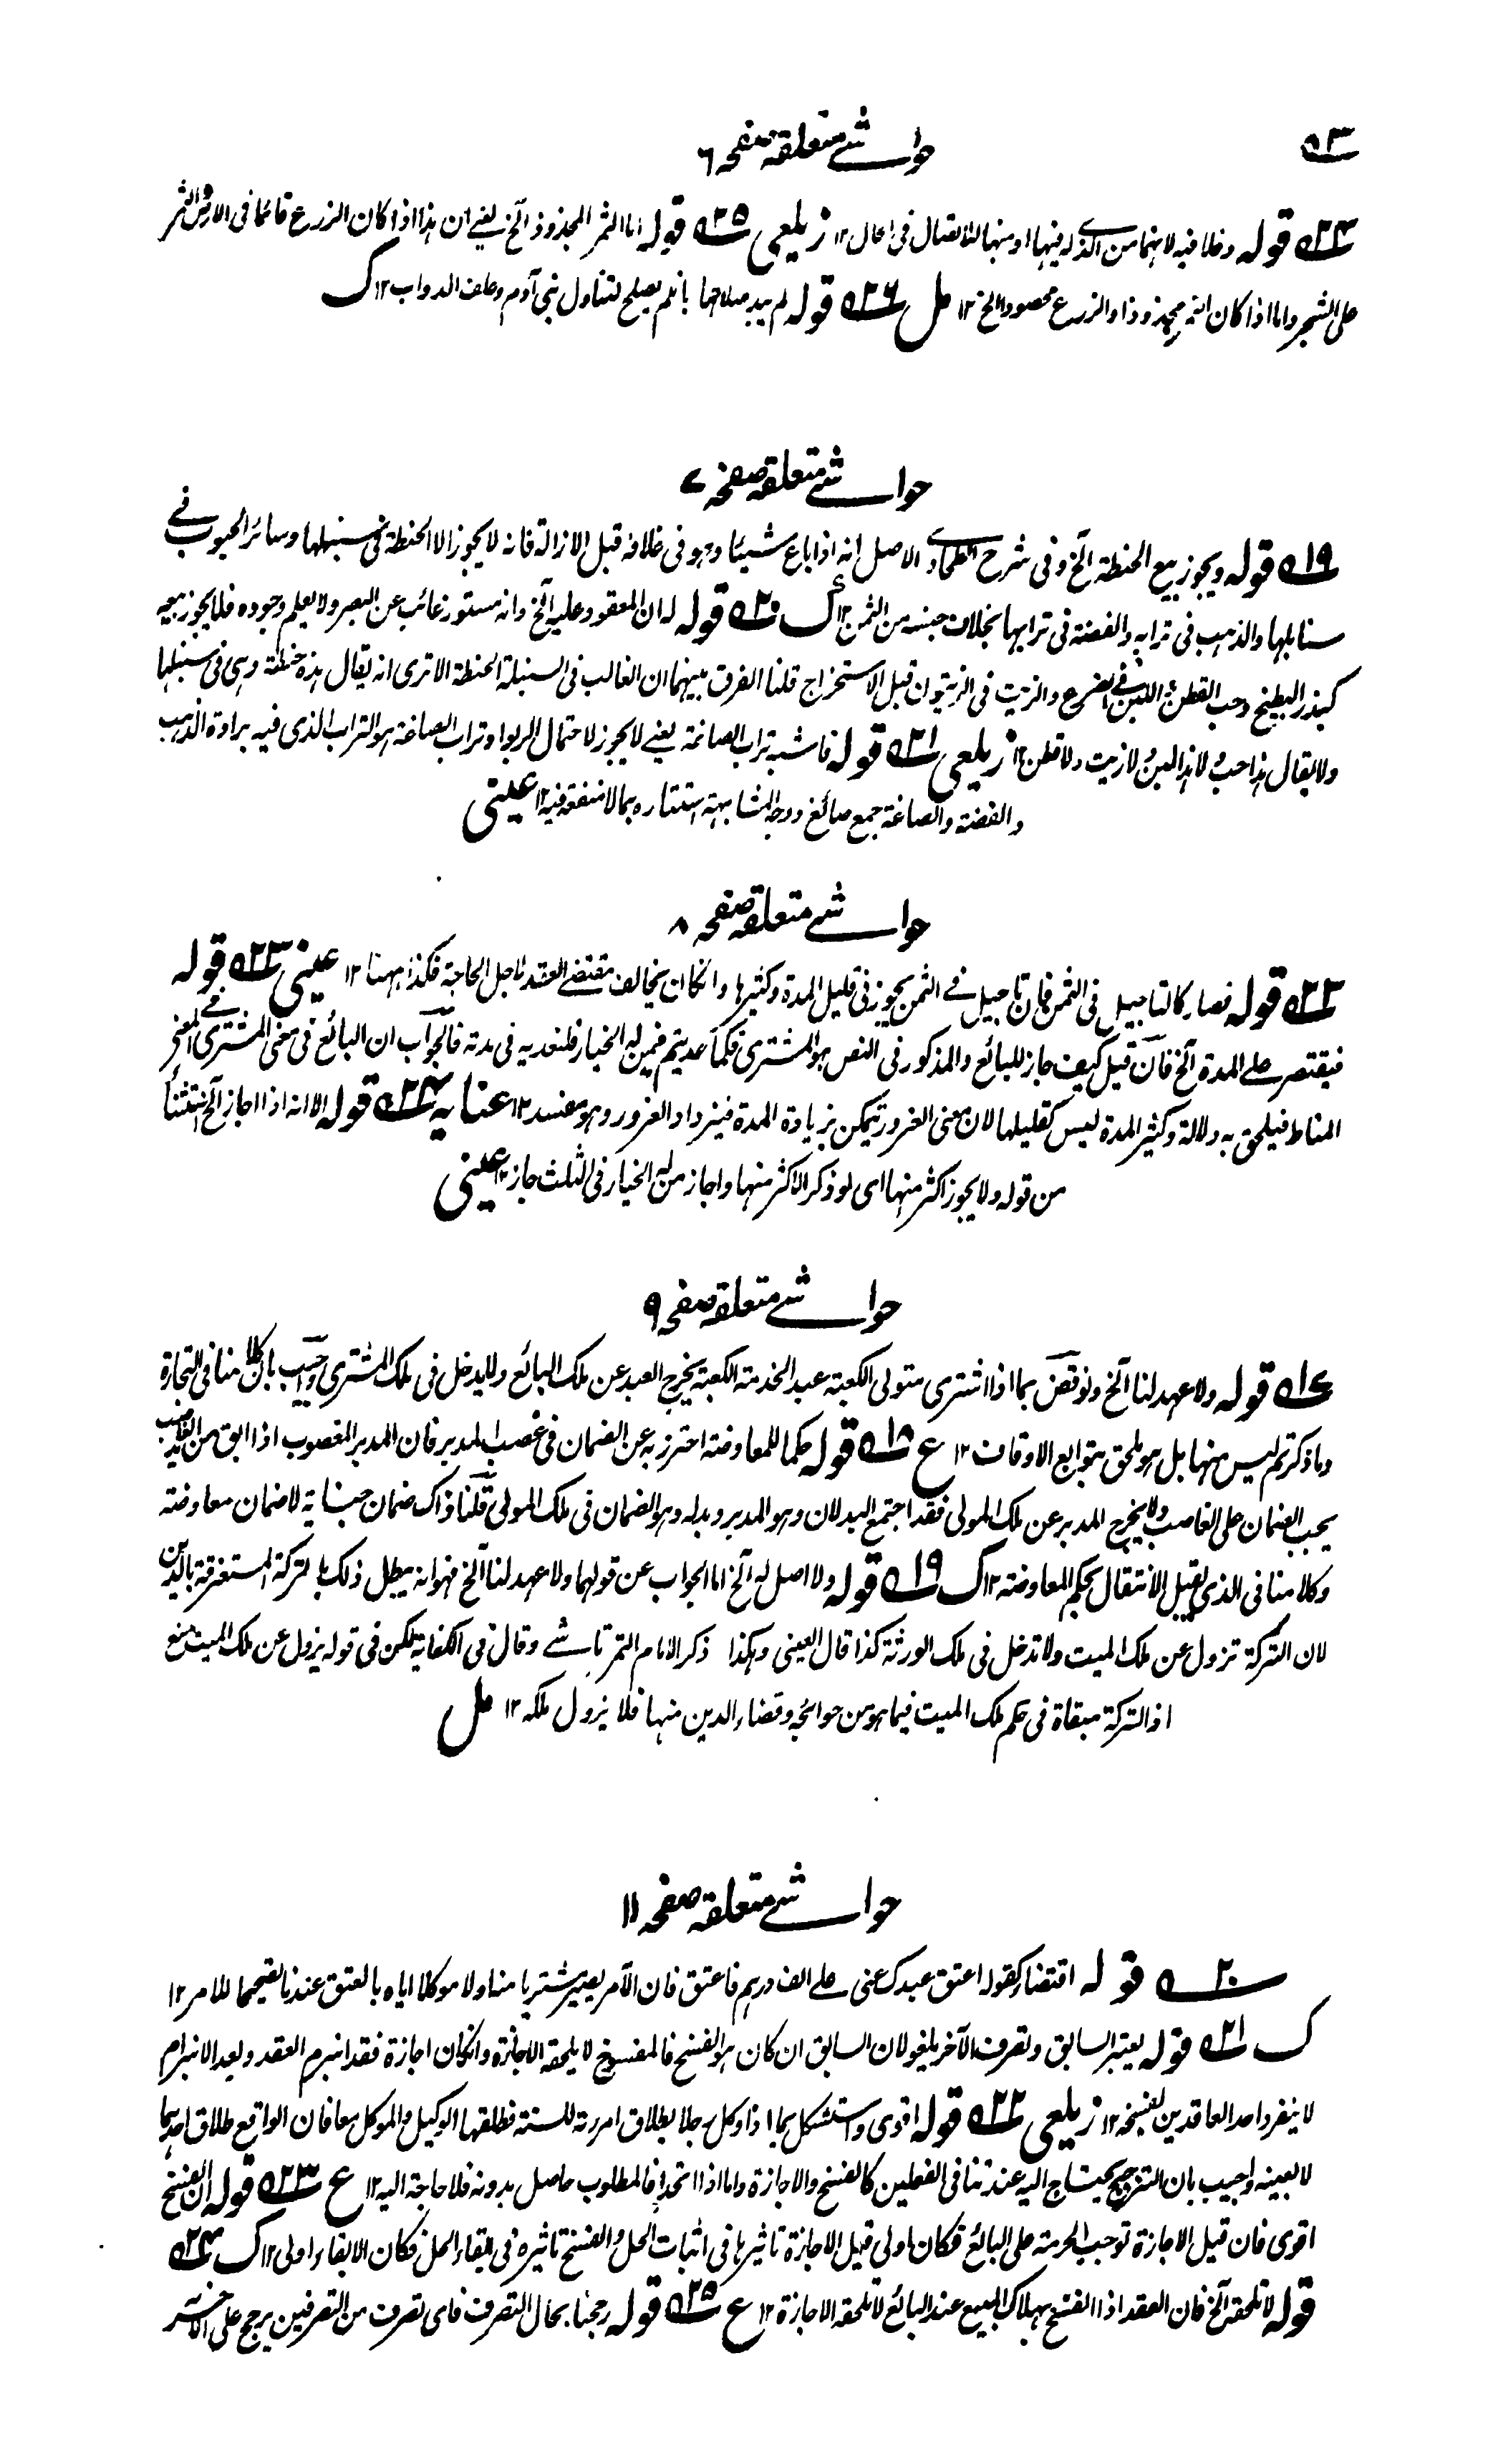 ٥٣
حواشے متعلقہ صفحہ ٦
٢٤ قوله دخلا فيه لانهما من الذى له فيها او منها للاتصال فى الحال ١٢ زيلعى ٢٥ قوله اما الثمر المجذوذ الخ يعنے ان هذا اذا كان الزرع قائما فى الارض والثمر
على الشجر واما اذا كان الثمر مجذوذا والزرع محصودا الخ ١٢ مل ٢٦ قوله لم يبد صلاحها بان لم يصلح لتناول بنى آدم وعلف الدواب ١٢ ك
حواشے متعلقہ صفحہ ٧
١٩ قوله ويجوز بيع الحنطة الخ وفى شرح الطحاوى الاصل انه اذا باع شيئا وهو فى غلافه قبل الازالة فانه لا يجوز الا الحنطة فى سنبلها وسائر الحبوب فے
سنابلها والذهب فى ترابه والفضة فى ترابها بخلاف جنسه من الثمن ١٢ ك ٢٠ قوله له ان المعقود عليه الخ وانه مستور غائب عن البصر ولا يعلم وجوده فلا يجوز بيعه
كبذر البطيخ وحب القطن واللبن فے الضرع والزيت فى الزيتون قبل الاستخراج قلنا الفرق بينهما ان الغالب فى السنبلة الحنطة الا ترى انه يقال هذه حنطة وهى فى سنبلها
ولا يقال هذا حب ولا هذا لبن ولا زيت ولا قطن ١٢ زيلعى ٢١ قوله فاشبه تراب الصاغة يعنے لا يجوز لاحتمال الربوا وتراب الصاغة هو التراب الذى فيه برادة الذهب
والفضة والصاغة جمع صائغ ووجه المشابهة استتاره بما لا منفعة فيه ١٢ عينى
حواشے متعلقہ صفحہ ٨
٢٢ قوله فصار كالتاجيل فى الثمن فان تاجيل فے الثمن يجوز فى قليل المدة وكثيرها وانكان يخالف مقتضے العقد لاجل الحاجة فكذا ههنا ١٢ عينى ٢٣ قوله
فيقتصر على المدة الخ فان قيل كيف جاز للبائع والمذكور فى النص هو المشترى فكما عديتم فيمن له الخيار فلنعديه فى مدته فالجواب ان البائع فى معنى المشترى فے المعنى
المناط فيلحق به دلالة وكثير المدة ليس كقليلها لان معنى الغرور يتمكن بزيادة المدة فيزداد الغرور وهو مفسد ١٢ عنايه ٢٤ قوله الا انه اذا اجاز الخ استثناء
من قوله ولا يجوز اكثر منها اى لو ذكر الاكثر منها واجاز من له الخيار فى الثلث جاز ١٢ عينى
حواشے متعلقہ صفحہ ٩
١٧ قوله ولا عهد لنا الخ ونوقض بما اذا اشترى متولى الكعبة عبدا لخدمة الكعبة يخرج العبد عن ملك البائع ولا يدخل فى ملك المشترى واجيب بان كلامنا فى التجارة
وما ذكرتم ليس منها بل هو ملحق بتوابع الاوقاف ١٢ ع ١٨ قوله حكما للمعاوضة احترز به عن الضمان فى غصب المدبر فان المدبر المغصوب اذا ابق من يد الغاصب
يجب الضمان على الغاصب ولا يخرج المدبر عن ملك المولى فقد اجتمع البدلان وهو المدبر وبدله وهو الضمان فى ملك المولى قلنا ذاك ضمان جناية لا ضمان معاوضة
وكلامنا فى الذى يقبل الانتقال بحكم المعاوضة ١٢ ك ١٩ قوله ولا اصل له الخ اما الجواب عن قولهما ولا عهد لنا الخ فهو انه يبطل ذلك بالتركة المستغرقة بالدين
لان التركة تزول عن ملك الميت ولا تدخل فى ملك الورثة كذا قال العينى وهكذا ذكر الامام التمرتاشے وقال فى الكفاية لكن فى قوله يزول عن ملك الميت منع
اذ التركة مبقاة فى حكم ملك الميت فيما هو من حوائجه وقضاء الدين منها فلا يزول ملكه ١٢ مل
حواشے متعلقہ صفحہ ١١
٢٠ قوله اقتضاء كقوله اعتق عبدك عنى على الف درهم فاعتق فان الآمر يصير مشتريا منا ولا موكلا اياه بالعتق عندنا تصحيحا للامر ١٢
ك ٢١ قوله يعتبر السابق وتصرف الآخر يلغو لان السابق ان كان هو الفسخ فالمفسوخ لا يلحقه الاجازة وانكان اجازة فقد انبرم العقد وبعد الانبرام
لا ينفرد احد العاقدين لفسخه ١٢ زيلعى ٢٢ قوله اقوى واستشكل بما اذا وكل رجلا بطلاق امرءته للسنة فطلقها الوكيل والموكل معا فان الواقع طلاق احدهما
لا بعينه واجيب بان الترجيح يحتاج اليه عند تنافى الفعلين كالفسخ والاجازة واما اذا اتحدا فالمطلوب حاصل بدونه فلا حاجة اليه ١٢ ع ٢٣ قوله ان الفسخ
اقوى فان قيل الاجازة توجب الحرمة على البائع فكان اولى قيل الاجازة تاثيرها فى اثبات الحل والفسخ تاثيره فى ابقاء الحل فكان الابقاء اولى ١٢ ك ٢٤
قوله لا تلحقه الخ فان العقد اذا انفسخ بهلاك المبيع عند البائع لا تلحقه الاجازة ١٢ ع ٢٥ قوله رجحنا بحال التصرف فاى تصرف من التصرفين يرجح على الآخر